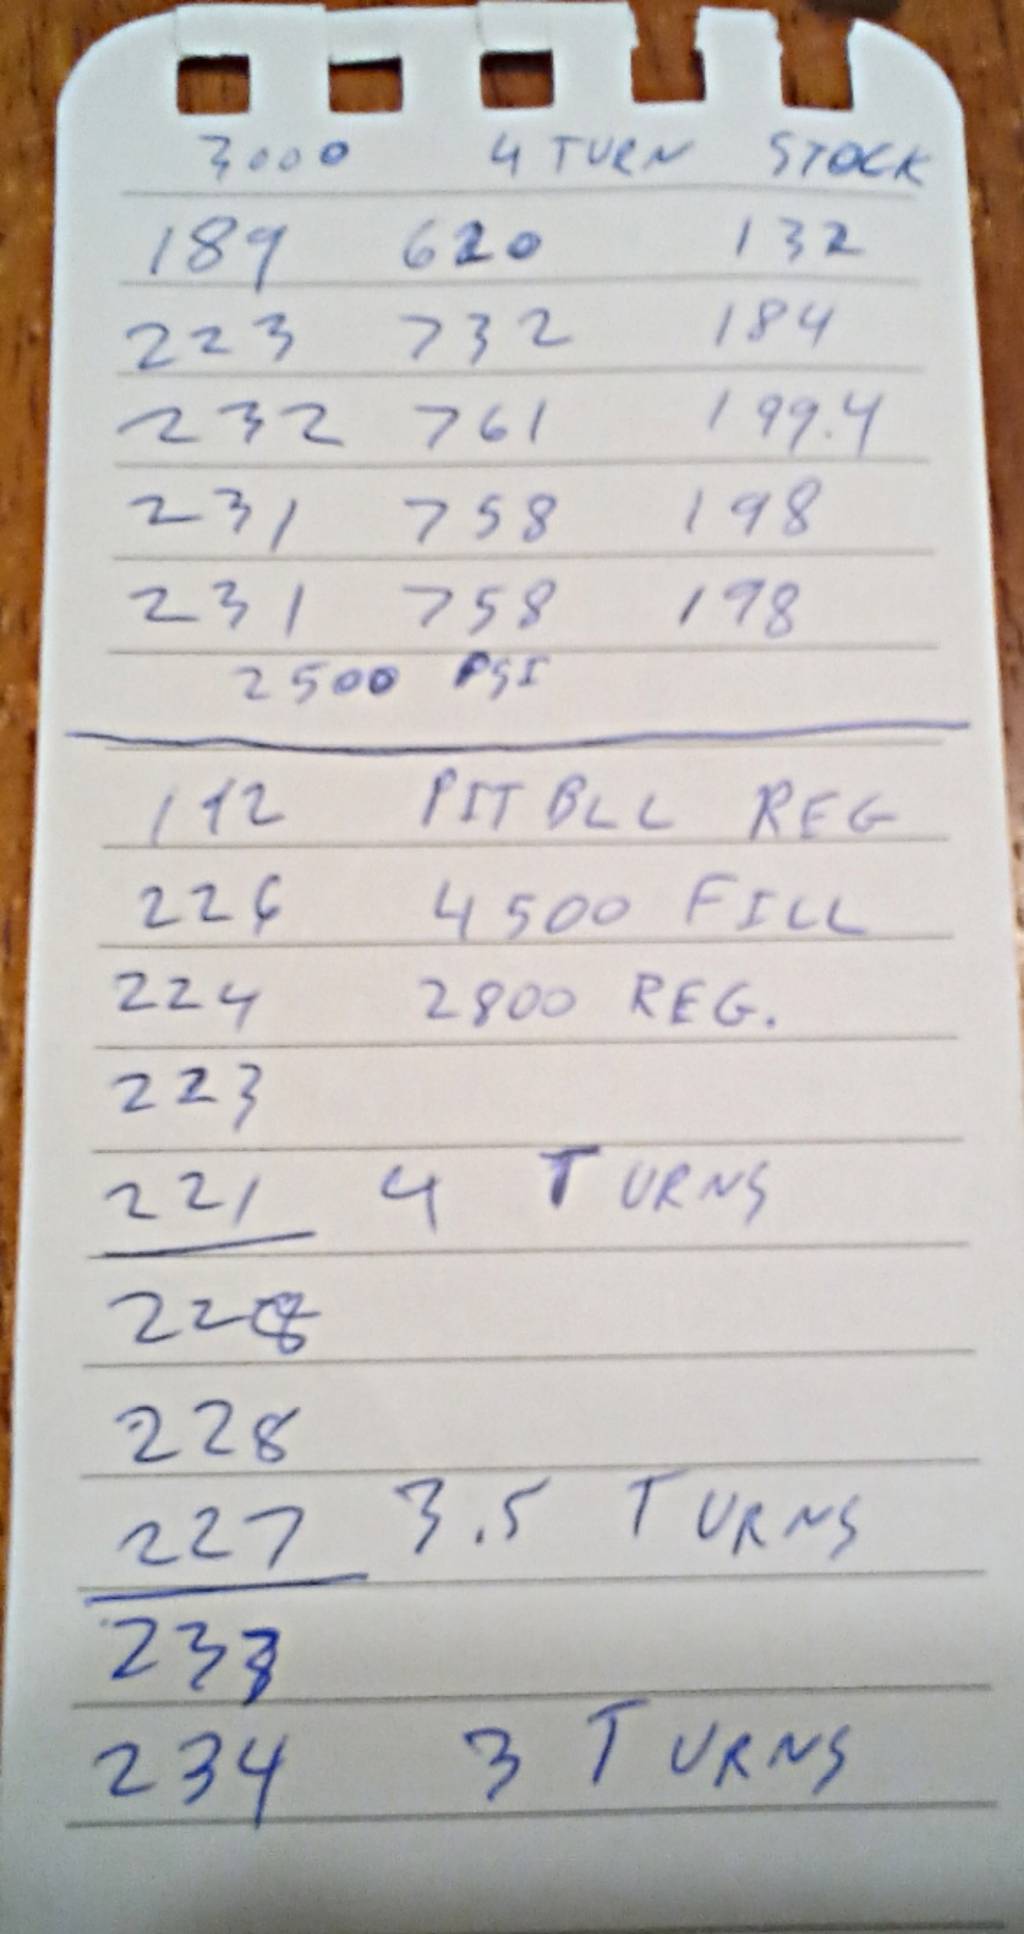 3000 4 TURN STOCK
189 620 132
223 732 184
232 761 199.4
231 758 198
231 758 198
2500 PSI
PIT BLL REG
226 4500 FILL
224 2800 REG.
223
221 4 TURNS
228
228
227 3.5 TURNS
233
234 3 TURNS